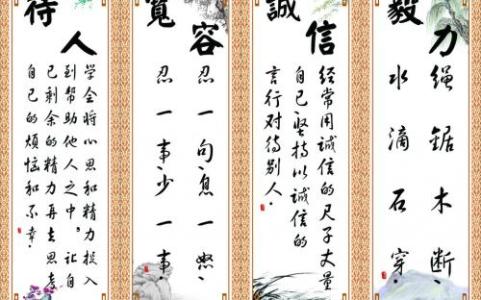 待人
学会将心思和精力投入
到帮助他人之中,让自
己剩余的精力再去思考
自己的烦恼和不幸.
寬容
忍一句,息一怒、
忍一事,少一事、
誠信
经常用誠信的尺子丈量
自己坚持以誠信的
言行对待别人.
毅力
绳锯木断、
水滴石穿.